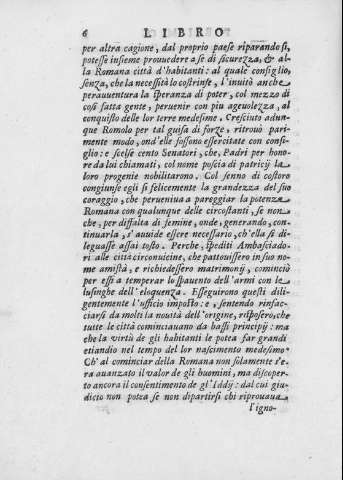 6 LIBRO
per altra cagione, dal proprio paese riparandosi,
potesse insieme prouuedere a se di sicurezza, & al-
la Romana città d'habitanti: al quale consiglio,
senza, che la necessità lo costrinse, l'inuitò anche
perauuentura la speranza di poter, col mezzo di
così fatta gente, peruenir con piu ageuolezza, al
conquisto delle lor terre medesime. Cresciuto adun-
que Romolo per tal guisa di forze, ritrouò pari-
mente modo, ond'elle fossono essercitate con consi-
glio: e scelse cento Senatori, che, Padri per hono-
re da lui chiamati, col nome poscia di patricij la
loro progenie nobilitarono. Col senno di costoro
congiunse egli sì felicemente la grandezza del suo
coraggio, che perueniua a pareggiar la potenza
Romana con qualunque delle circostanti, se non
che, per diffalta di femine, onde, generando, con-
tinuarla, s'auuide essere necessario, ch'ella si di-
leguasse assai tosto. Perche, spediti Ambasciado-
ri alle città circonuicine, che pattouissero in suo no-
me amistà, e richiedessero matrimonij, cominciò
per essi a temperar lo spauento dell'armi con le
lusinghe dell'eloquenza. Esseguirono questi dili-
gentemente l'ufficio imposto: e, sentendo rinfac-
ciarsi da molti la nouità dell'origine, risposero, che
tutte le città cominciauano da bassi principij: ma
che la virtù de gli habitanti le potea far grandi
etiandio nel tempo del lor nascimento medesimo.
Ch'al cominciar della Romana non solamente s'e-
ra auanzato il valor de gli huomini, ma discoper-
to ancora il consentimento de gl'Iddij: dal cui giu-
dicio non potea se non dipartirsi chi riprouaua
l'igno-